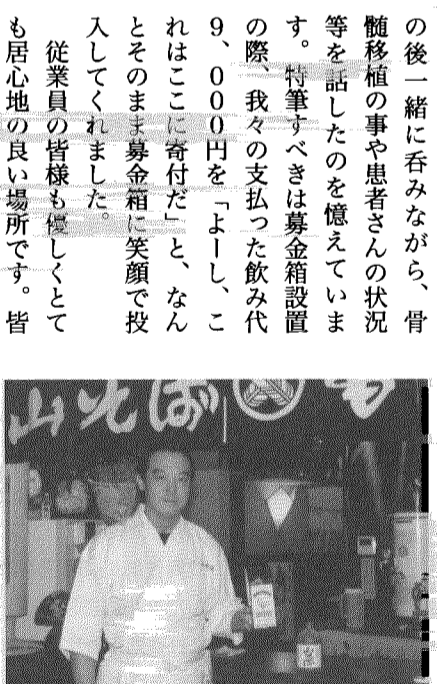 の後一緒に呑みながら、骨
髄移植の事や患者さんの状況
等を話したのを憶えていま
す。特筆すべきは募金箱設置
の際、我々の支払った飲み代
9、000円を「よーし、こ
れはここに寄付だ」と、なん
とそのまま募金箱に笑顔で投
入してくれました。
従業員の皆様も優しくとて
も居心地の良い場所です。皆
山そば